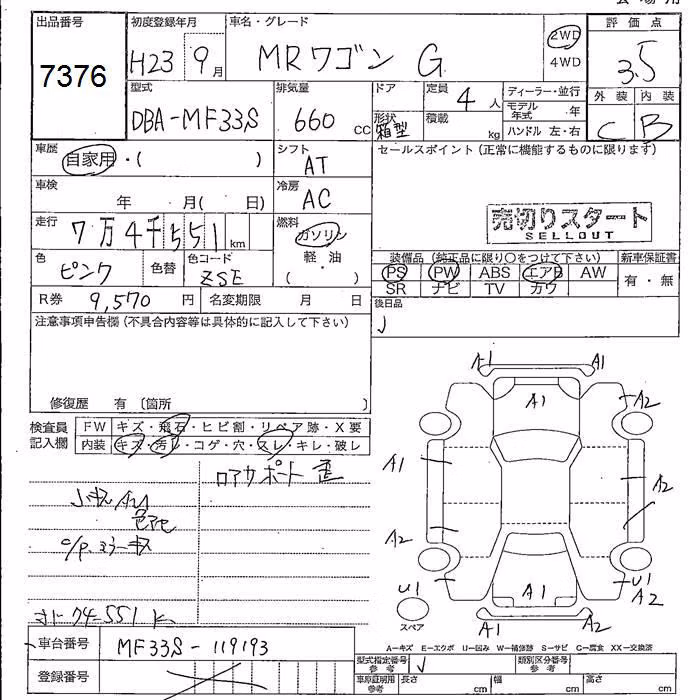 会場用
出品番号 初度登録年月 車名・グレード 評価点
7376 H23 9月 MRワゴン G 2WD 4WD 3.5
型式 排気量 ドア 定員 ディーラー・並行 外装 内装
DBA-MF33S 660 CC 形状 箱型 4人 積載 kg モデル年式 年 ハンドル 左・右 C B
車歴 自家用・( ) シフト AT セールスポイント(正常に機能するものに限ります)
車検 年 月( 日) 冷房 AC
走行 7万4千551km 燃料 ガソリン 軽・油 ( )
売切りスタート
SELLOUT
色 ピンク 色替 色コード ZSE
装備品(純正品に限り〇をつけて下さい) 新車保証書
PS PW ABS エアB AW 有・無
SR ナビ TV カワ
R券 9,570円 名変期限 月 日 後日品
注意事項申告欄(不具合内容等は具体的に記入して下さい)
修復歴 有〔箇所 〕
検査員記入欄 FW キズ・飛石・ヒビ割・リペア跡・X要
内装 キズ・汚レ・コゲ・穴・スレ・キレ・破レ
ロアサポート 歪
色アセ
C/P ミラーキズ
74551K
A1 A1
A1 A2
A1 A2
A2
U1 A1 U1 A2
スペア A1 A2
A—キズ E—エクボ U—凹み W—補修跡 S—サビ C—腐食 XX—交換済
車台番号 MF33S-119193
型式指定番号 参考 類別区分番号 参考
登録番号
車庫証明用 参考 長さ cm 幅 cm 高さ cm